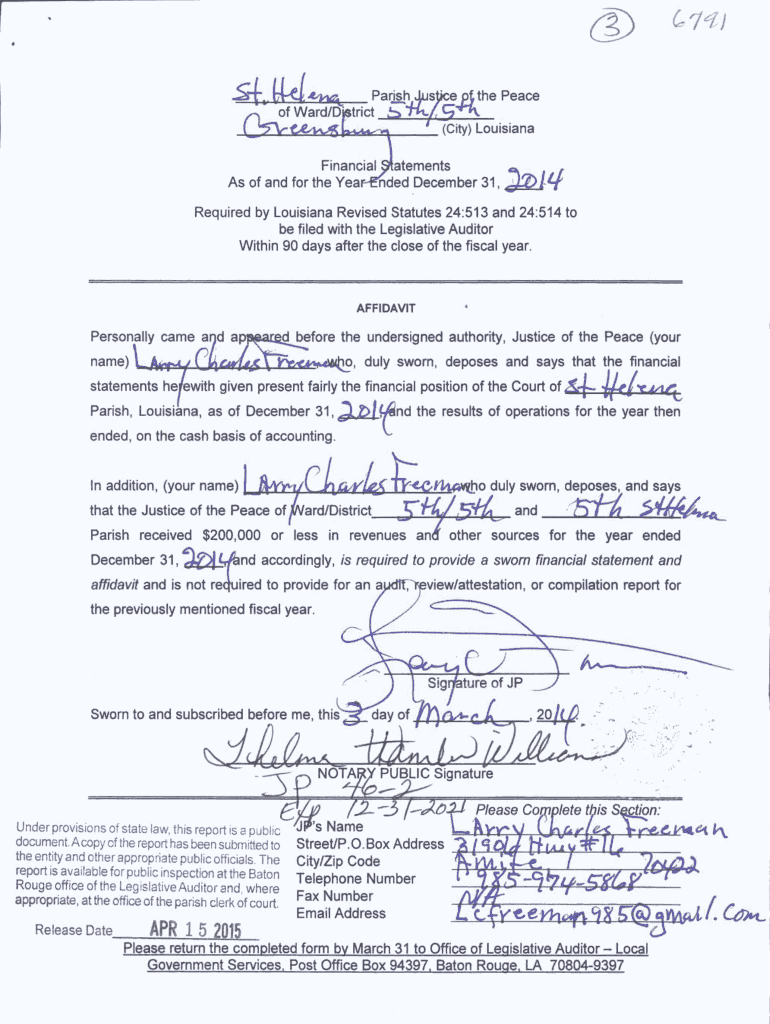 3 6791
St. Helena Parish Justice of the Peace
of Ward/District 5th/5th
Greensburg (City) Louisiana
Financial Statements
As of and for the Year Ended December 31, 2014
Required by Louisiana Revised Statutes 24:513 and 24:514 to
be filed with the Legislative Auditor
Within 90 days after the close of the fiscal year.
AFFIDAVIT
Personally came and appeared before the undersigned authority, Justice of the Peace (your
name) LArry Charles Freeman who, duly sworn, deposes and says that the financial
statements herewith given present fairly the financial position of the Court of St Helena
Parish, Louisiana, as of December 31, 2014 and the results of operations for the year then
ended, on the cash basis of accounting.
In addition, (your name) LArry Charles Freeman who duly sworn, deposes, and says
that the Justice of the Peace of Ward/District 5th/5th and 5th St Helena
Parish received $200,000 or less in revenues and other sources for the year ended
December 31, 2014 and accordingly, is required to provide a sworn financial statement and
affidavit and is not required to provide for an audit, review/attestation, or compilation report for
the previously mentioned fiscal year.
Signature of JP
Sworn to and subscribed before me, this 3 day of March, 2014.
Thelma Hamler Williams
NOTARY PUBLIC Signature
JP 46-2
Exp 12-31-2021 Please Complete this Section:
Under provisions of state law, this report is a public
document. A copy of the report has been submitted to
the entity and other appropriate public officials. The
report is available for public inspection at the Baton
Rouge office of the Legislative Auditor and, where
appropriate, at the office of the parish clerk of court.
Release Date APR 15 2015
JP's Name LArry Charles Freeman
Street/P.O.Box Address 3190ld Hwy #16
City/Zip Code Amite 70422
Telephone Number 985-974-5868
Fax Number N/A
Email Address Lcfreeman985@gmail.com
Please return the completed form by March 31 to Office of Legislative Auditor – Local
Government Services, Post Office Box 94397, Baton Rouge, LA 70804-9397